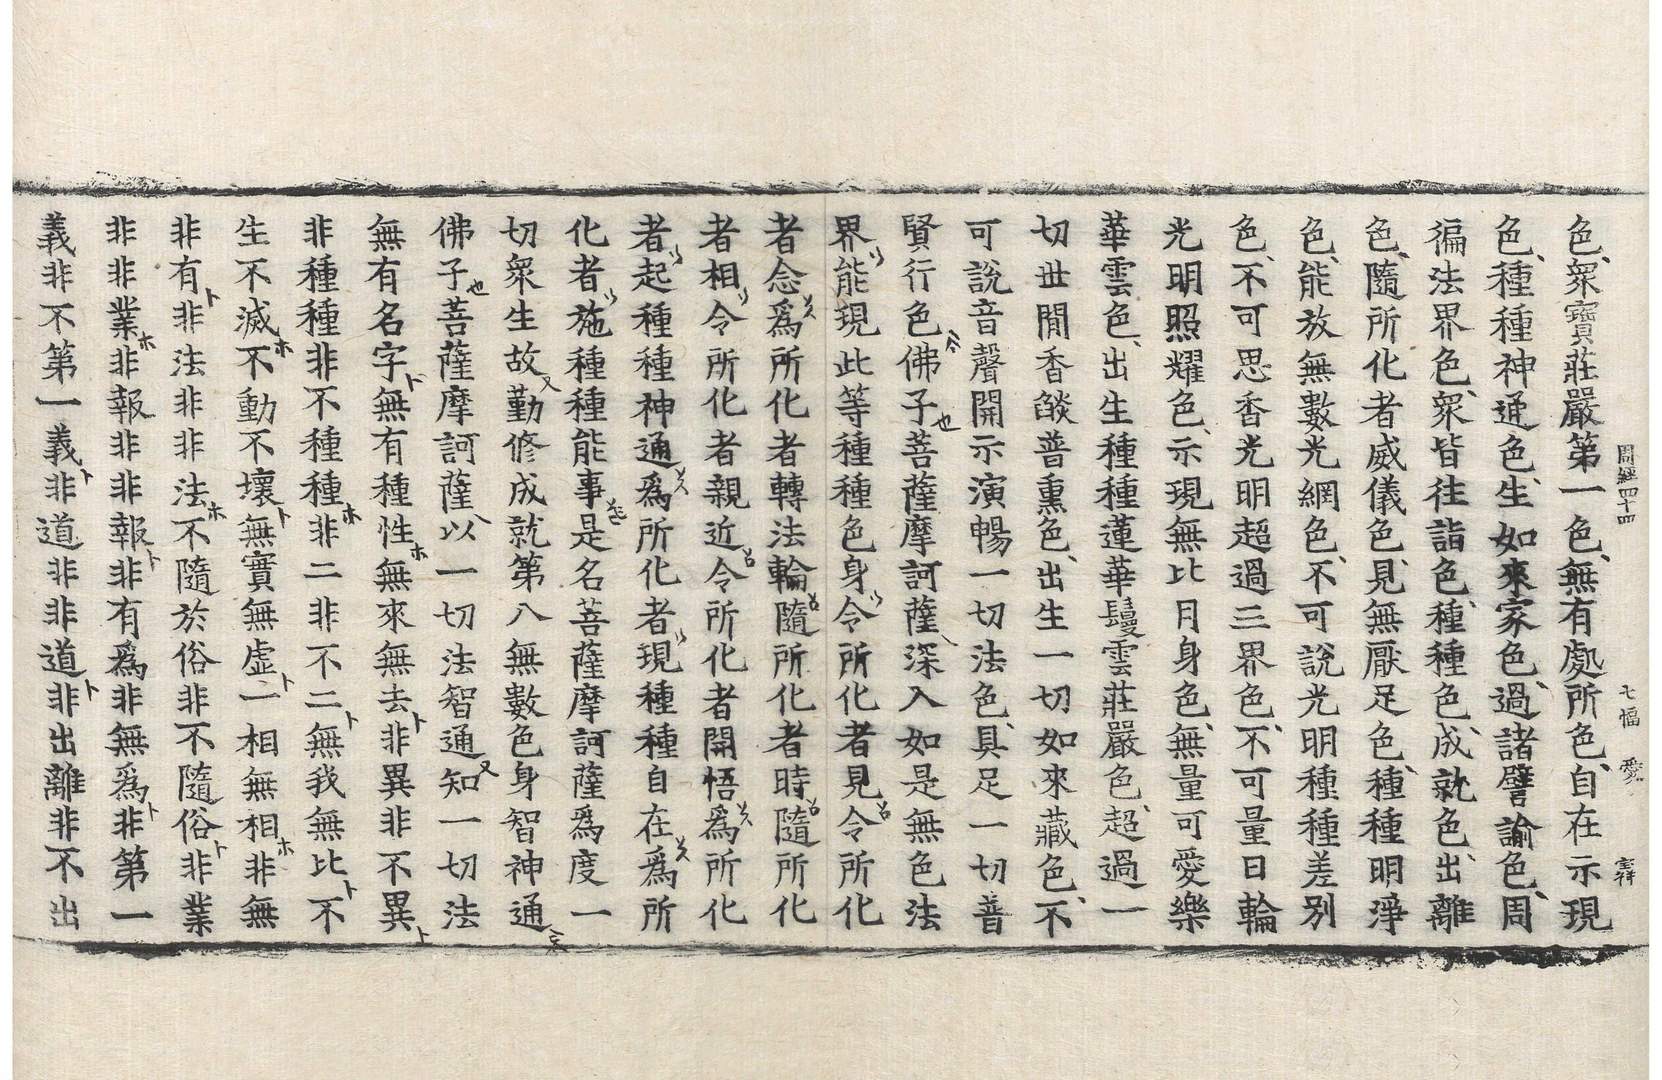 周經四十四　七幅　愛　寔祥
色衆寶莊嚴第一色無有處所色自在示現
色種種神通色生如來家色過諸譬諭色周
徧法界色衆皆往詣色種種色成就色出離
色隨所化者威儀色見無厭足色種種明淨
色能放無數光網色不可說光明種種差別
色不可思香光明超過三界色不可量日輪
光明照耀色示現無比月身色無量可愛樂
華雲色出生種種蓮華鬘雲莊嚴色超過一
切世間香燄普熏色出生一切如來藏色不
可說音聲開示演暢一切法色具足一切普
賢行色佛子菩薩摩訶薩深入如是無色法
界能現此等種種色身令所化者見令所化
者念爲所化者轉法輪隨所化者時隨所化
者相令所化者親近令所化者開悟爲所化
者起種種神通爲所化者現種種自在爲所
化者施種種能事是名菩薩摩訶薩爲度一
切衆生故勤修成就第八無數色身智神通
佛子菩薩摩訶薩以一切法智通知一切法
無有名字無有種性無來無去非異非不異
非種種非不種種非二非不二無我無比不
生不滅不動不壞無實無虛一相無相非無
非有非法非非法不隨於俗非不隨俗非業
非非業非報非非報非有爲非無爲非第一
義非不第一義非道非非道非出離非不出